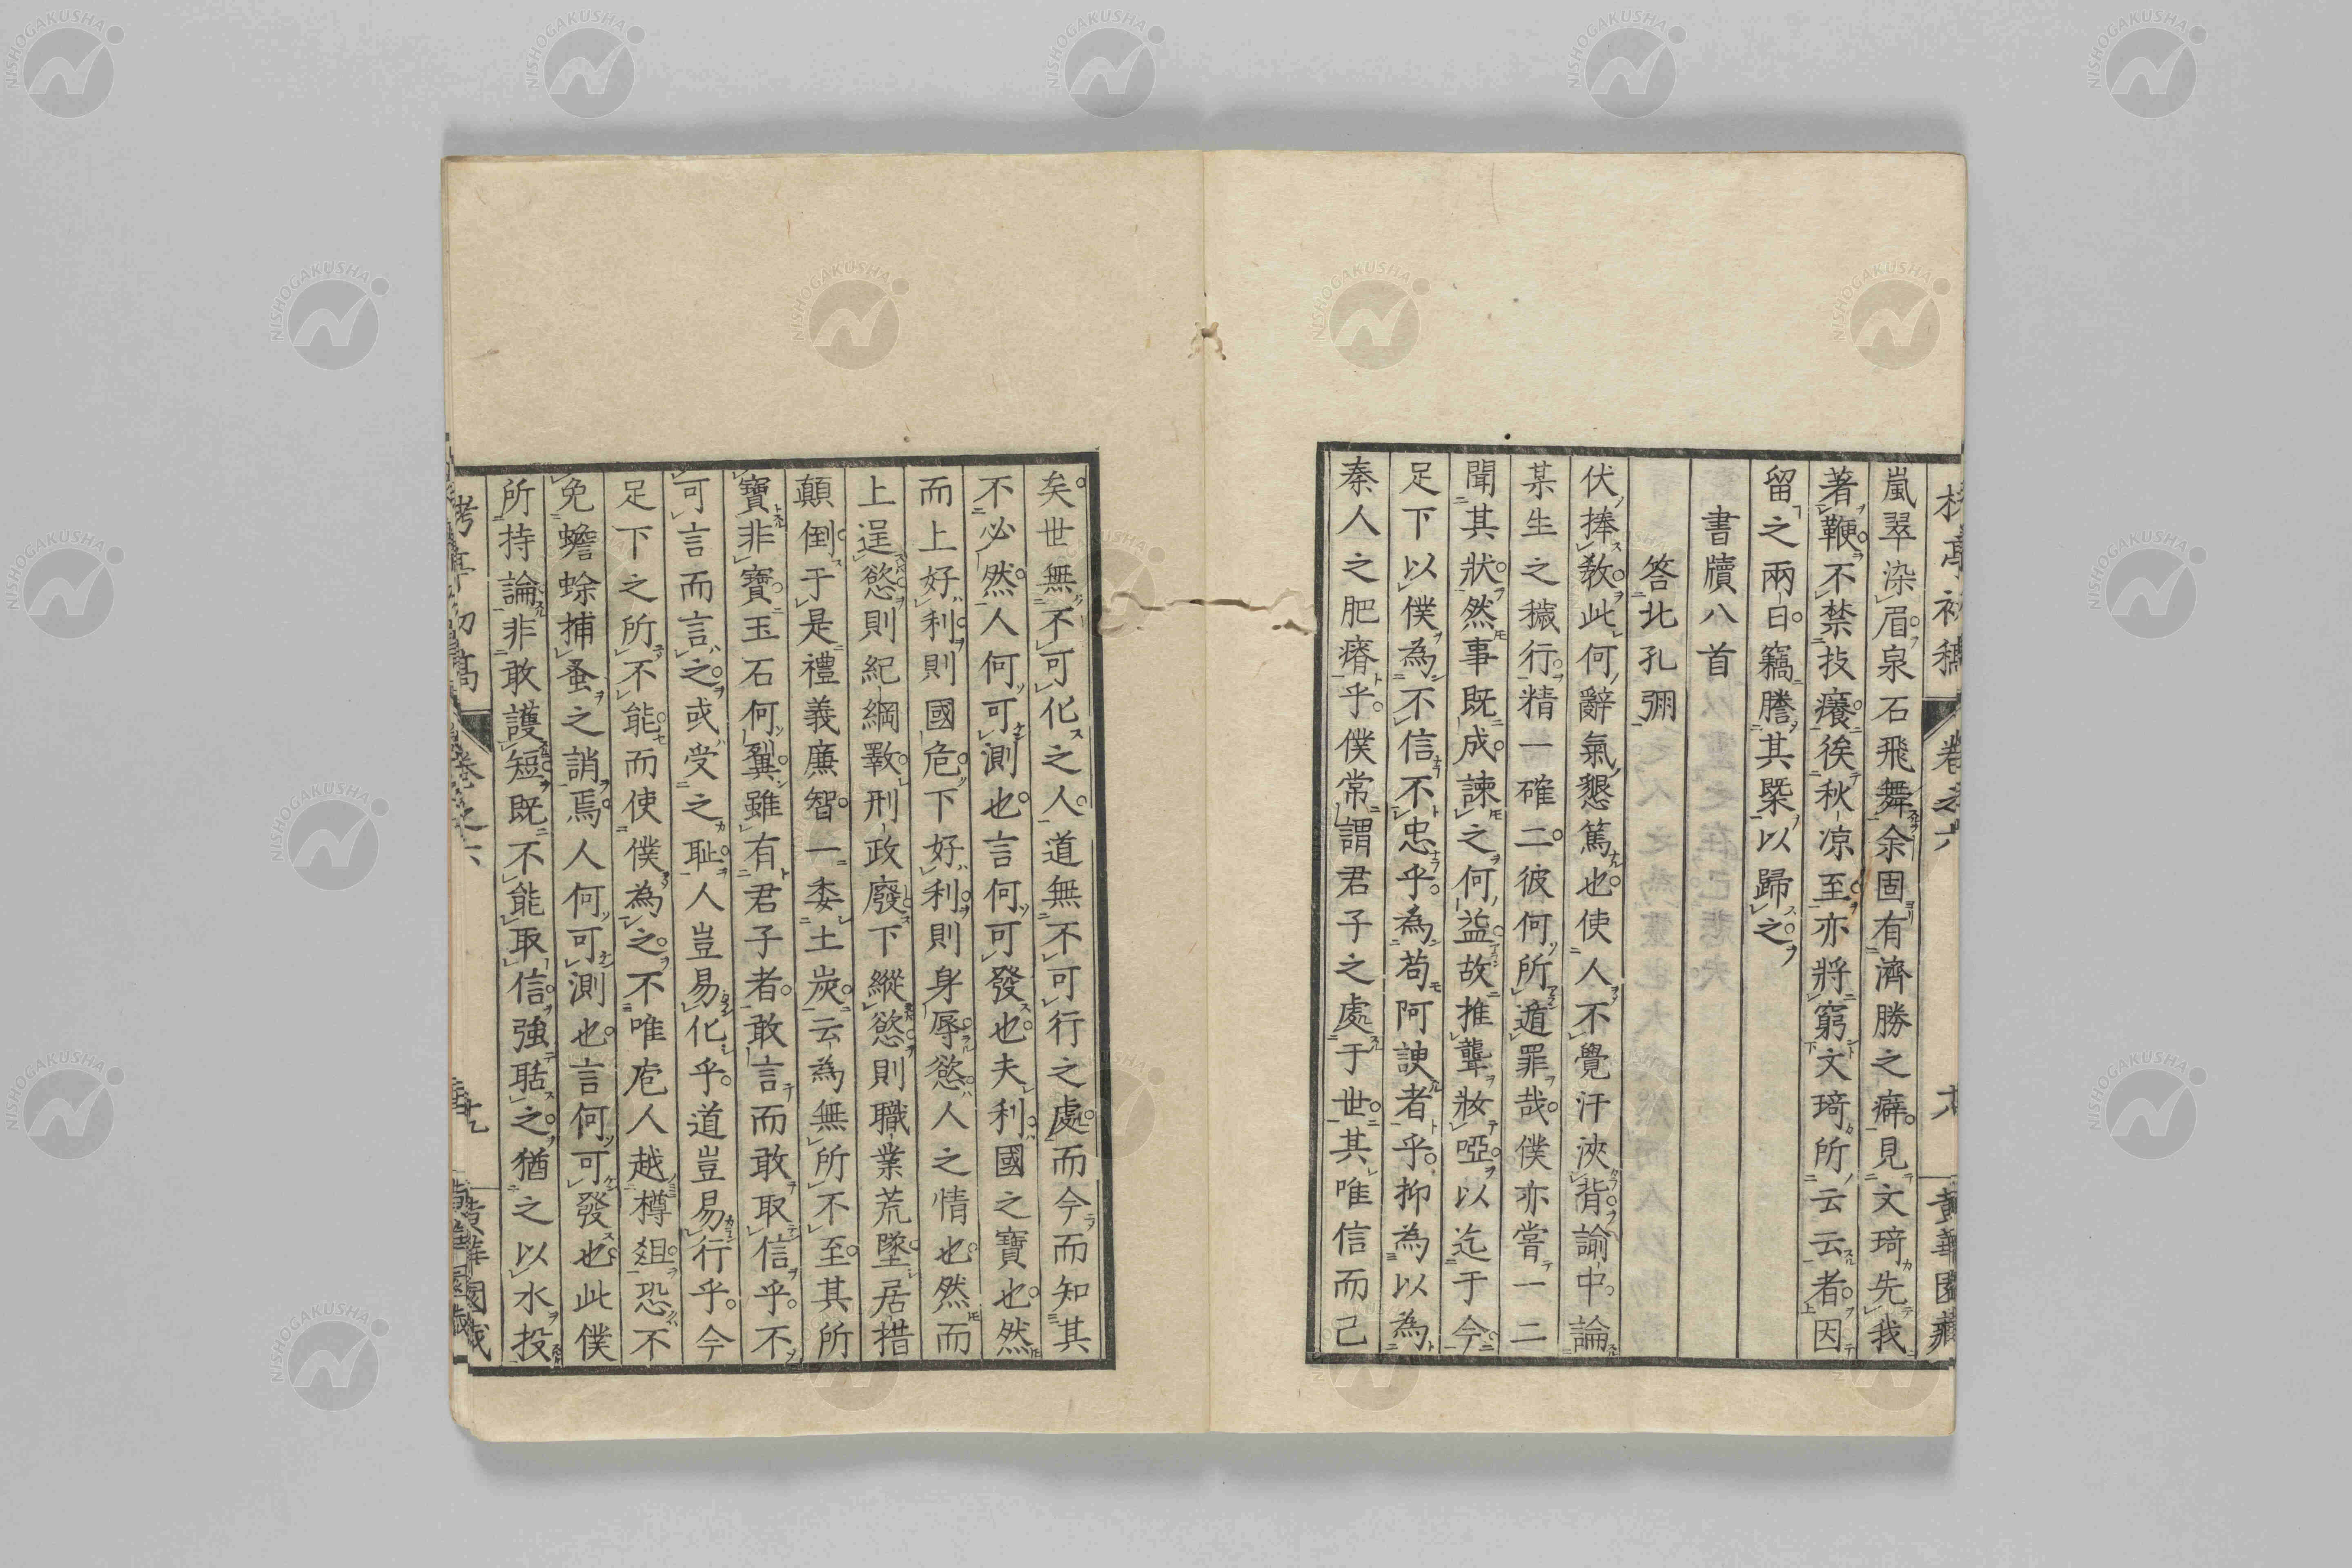 嵐翠染眉泉石飛舞余固有濟勝之癖見文琦先我
著鞭不禁技癢俟秋凉至亦將窮文琦所云云者因
留之兩日竊謄其槩以歸之
書牘八首
答北孔彌
伏捧敎此何辭氣懇篤也使人不覺汗浹背諭中論
某生之穢行精一確二彼何所遁罪哉僕亦嘗一二
聞其狀然事既成諫之何益故推聾妝啞以迄于今
足下以僕為不信不忠乎為苟阿諛者乎抑為以為
秦人之肥瘠乎僕常謂君子之處于世其唯信而己
矣世無不可化之人道無不可行之處而今而知其
不必然人何可測也言何可發也夫利國之寶也然
而上好利則國危下好利則身辱慾人之情也然而
上逞慾則紀綱斁刑政廢下縱慾則職業荒墜居措
顛倒于是禮義廉智一委土炭云為無所不至其所
寶非寶玉石何翼雖有君子者敢言而敢取信乎不
可言而言之或受之恥人豈易化乎道豈易行乎今
足下之所不能而使僕為之不唯庖人越樽俎恐不
免蟾蜍捕蚤之誚焉人何可測也言何可發也此僕
所持論非敢護短既不能取信強聒之猶之以水投
卷之六
黃華園藏
NISHOGAKUSHA